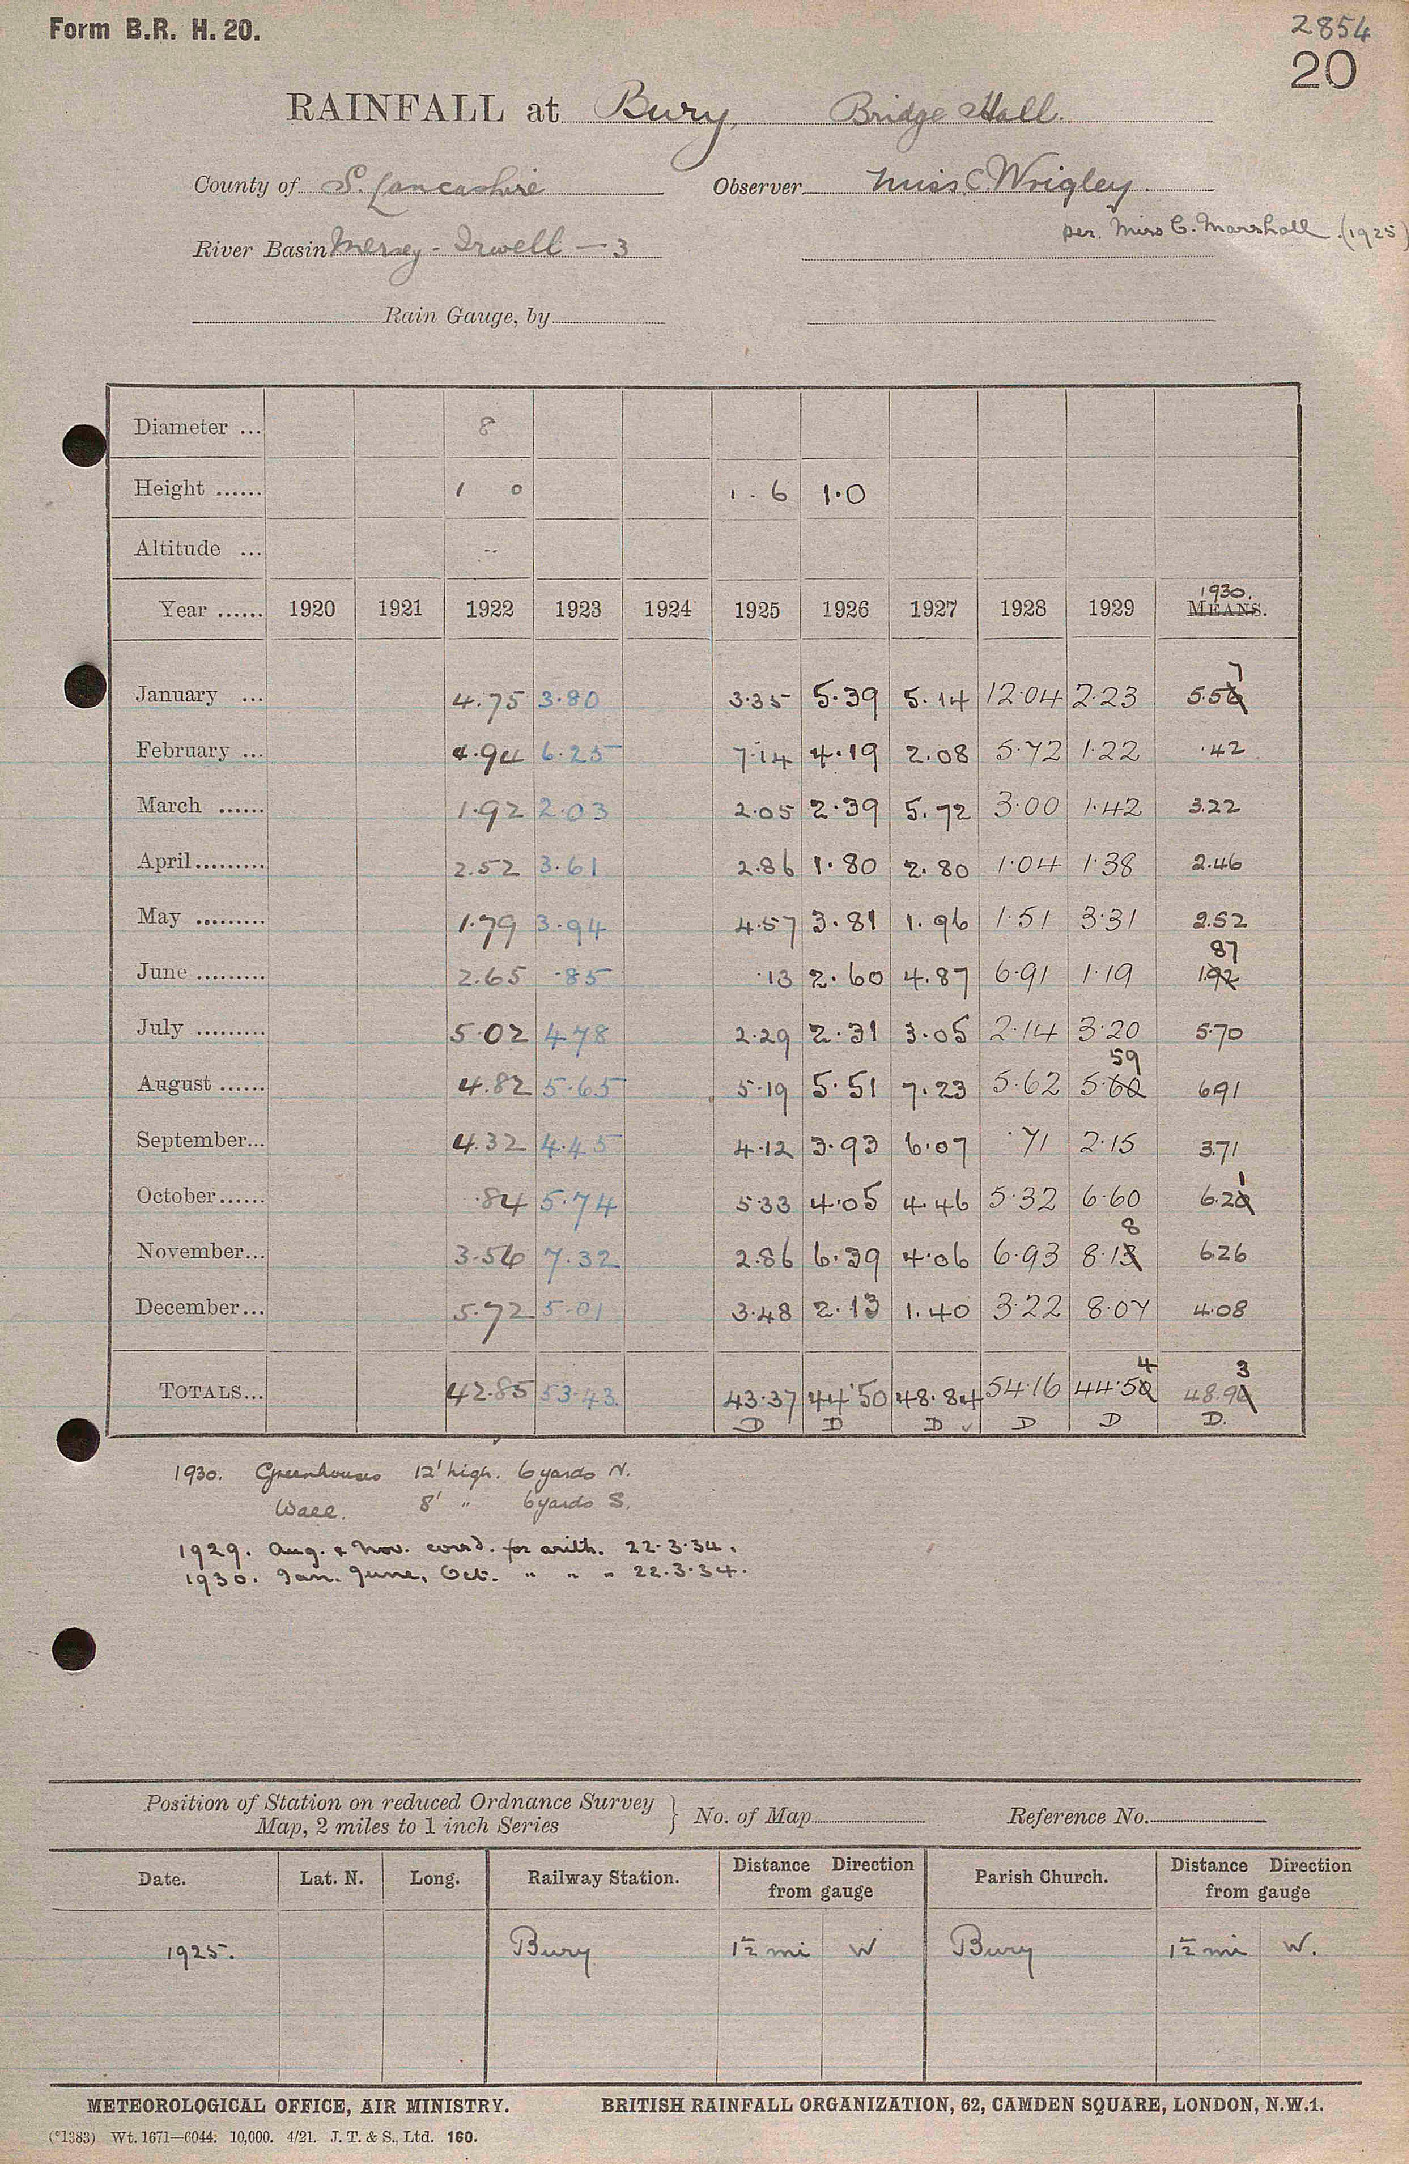 Form B.R. H. 20.
2854
20
RAINFALL at Bury, Bridge Hall.
County of S. Lancashire Observer Miss C Wrigley
per. Miss C. Marshall. (1925)
River Basin Mersey - Irwell - 3
Rain Gauge, by
Diameter ... 8
Height ...... 1 0 1 . 6 1.0
Altitude ... --
1930.
Year ...... 1920 1921 1922 1923 1924 1925 1926 1927 1928 1929 MEANS.
7
January ... 4.75 3.80 3.35 5.39 5.14 12.04 2.23 5.56
February ... 4.94 6.25 7.14 4.19 2.08 5.72 1.22 .42
March ...... 1.92 2.03 2.05 2.39 5.72 3.00 1.42 3.22
April ......... 2.52 3.61 2.86 1.80 2.80 1.04 1.38 2.46
May ......... 1.79 3.94 4.57 3.81 1.96 1.51 3.31 2.52
87
June ......... 2.65 .85 .13 2.60 4.87 6.91 1.19 1.92
July ......... 5.02 4.78 2.29 2.31 3.05 2.14 3.20 5.70
59
August ...... 4.82 5.65 5.19 5.51 7.23 5.62 5.60 6.91
September... 4.32 4.45 4.12 3.93 6.07 .71 2.15 3.71
1
October...... .84 5.74 5.33 4.05 4.46 5.32 6.60 6.20
8
November... 3.56 7.32 2.86 6.39 4.06 6.93 8.13 6.26
December... 5.72 5.01 3.48 2.13 1.40 3.22 8.07 4.08
4 3
TOTALS... 42.85 53.43 43.37 44.50 48.84 54.16 44.50 48.90
D D D ✓ D D D.
1930. Greenhouses 12' high. 6 yards N.
Wall. 8' " 6 yards S.
1929. Aug. & Nov. corrd. for arith. 22.3.34.
1930. Jan. June, Oct. " " " 22.3.34.
Position of Station on reduced Ordnance Survey
Map, 2 miles to 1 inch Series } No. of Map Reference No.
Date. Lat. N. Long. Railway Station. Distance Direction from gauge Parish Church. Distance Direction from gauge
1925. Bury 1½ mi W Bury 1½ mi W.
METEOROLOGICAL OFFICE, AIR MINISTRY. BRITISH RAINFALL ORGANIZATION, 62, CAMDEN SQUARE, LONDON, N.W.1.
(*1383) Wt. 1671—6044. 10,000. 4/21. J. T. & S., Ltd. 160.